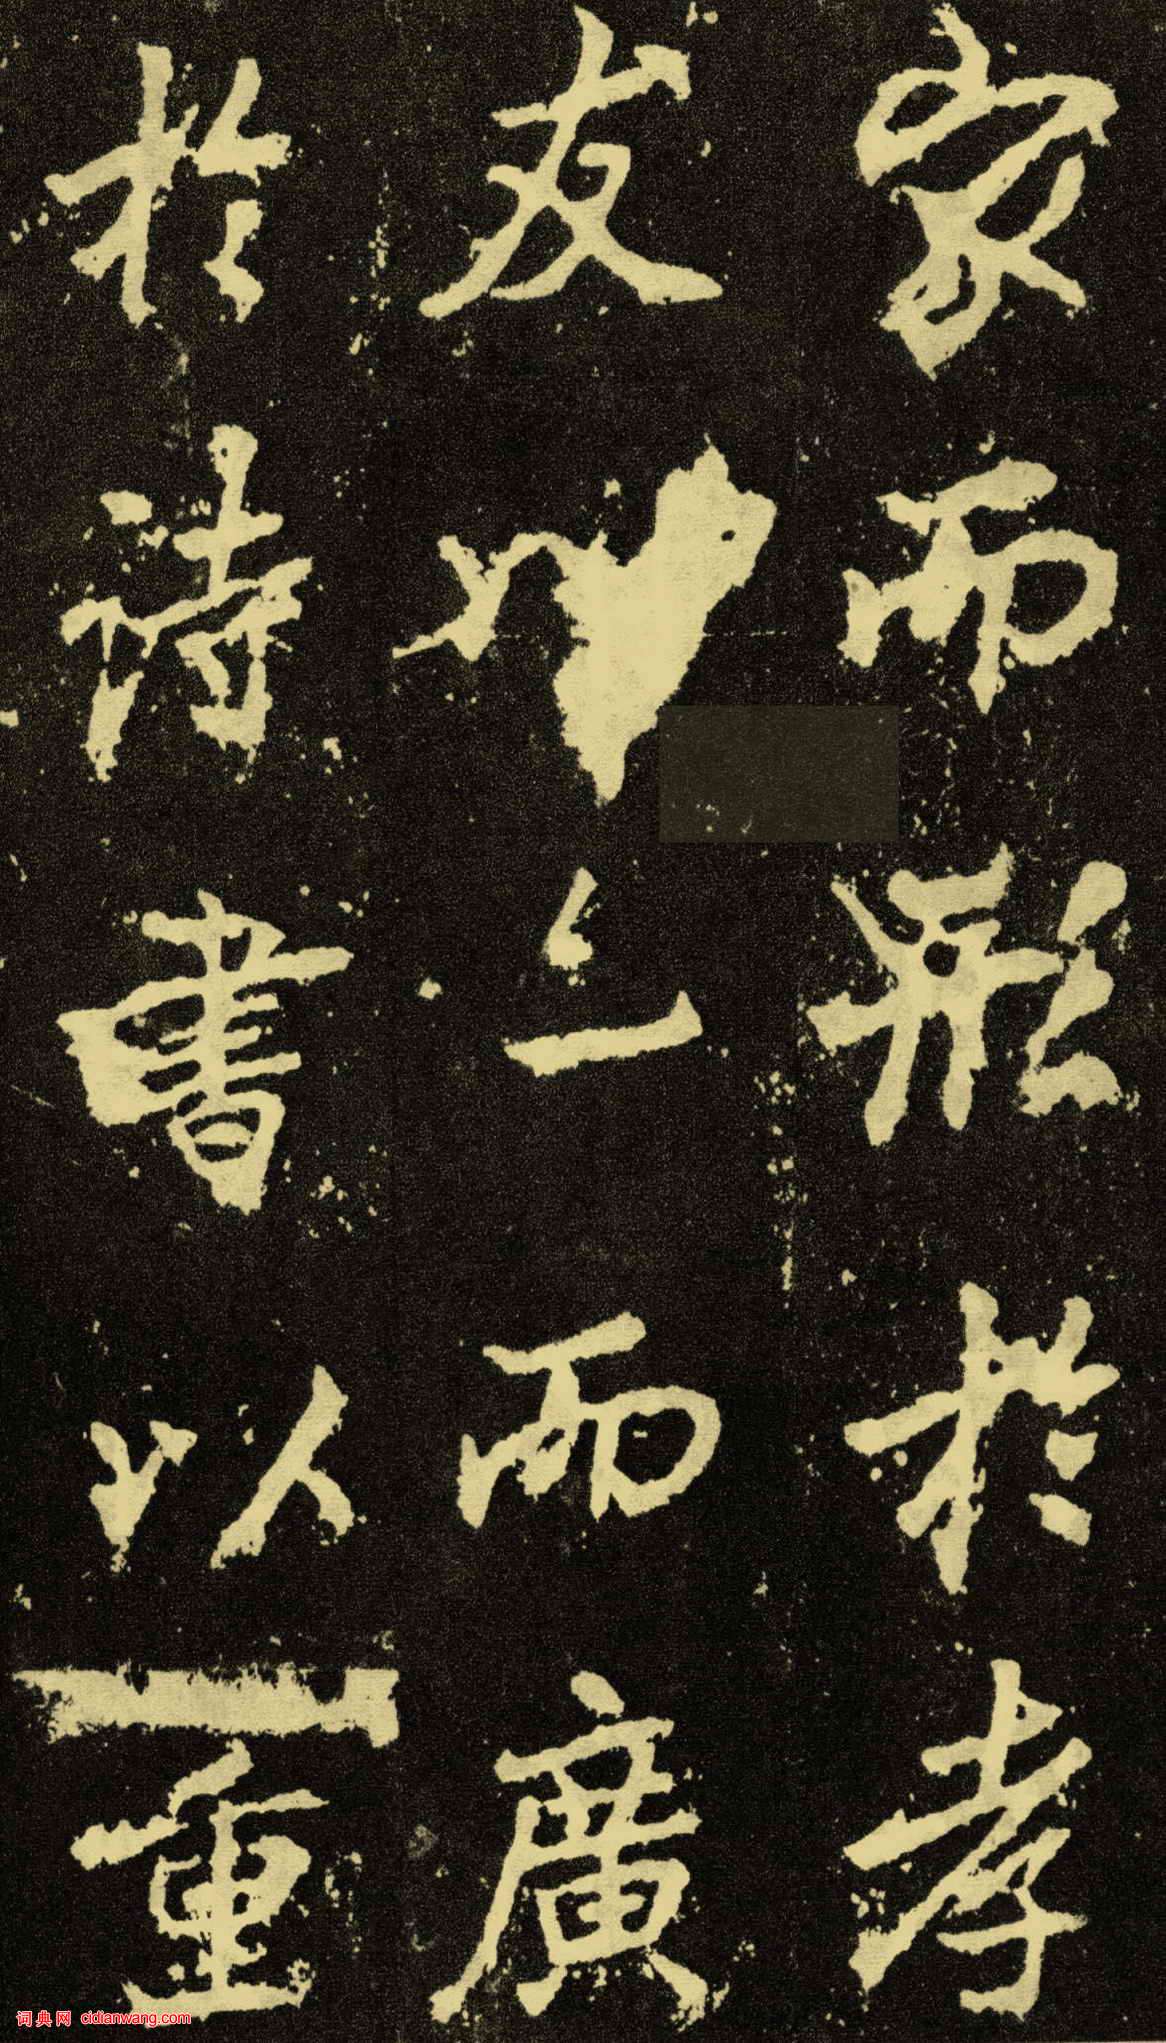 家而形於孝
友而廣
於詩書以重
词典网 cidianwang.com